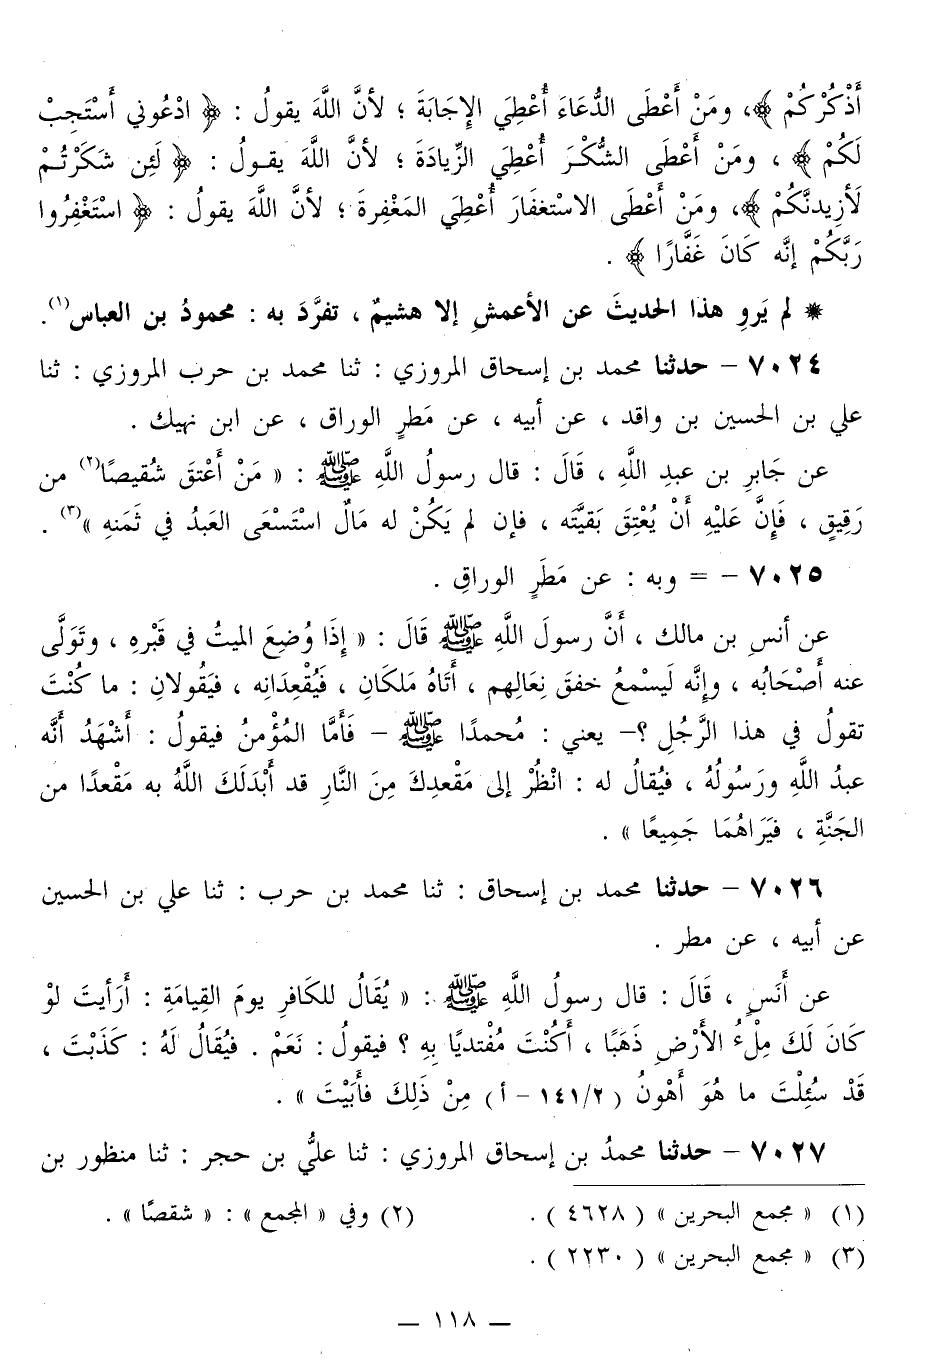 أَذْكُرْكُمْ ﴾، ومَنْ أَعْطَى الدُّعَاءَ أُعْطِيَ الإِجَابَةَ ؛ لأنَّ اللَّهَ يقولُ : ﴿ ادْعُوني أَسْتَجِبْ
لَكُمْ ﴾ ، ومَنْ أَعْطَى الشُّكْـرَ أُعْطِيَ الزِّيادَةَ ؛ لأنَّ اللَّهَ يقـولُ : ﴿ لَئِن شَكَرْتُـمْ
لَأزِيدنَّكُمْ ﴾، ومَنْ أَعْطَى الاسْتغفَارَ أُعْطِيَ المَغْفِرةَ ؛ لأنَّ اللَّهَ يقولُ : ﴿ اسْتَغْفِرُوا
رَبَّكُمْ إنَّه كَانَ غَفَّارًا ﴾ .
* لم يَروِ هذا الحديثَ عن الأعمشِ إلا هشيمٌ ، تفرَّدَ به : محمودُ بن العباس(١).
٧٠٢٤ – حدثنا محمد بن إسحاق المروزي : ثنا محمد بن حرب المروزي : ثنا
علي بن الحسين بن واقد ، عن أبيه ، عن مَطرٍ الوراق ، عن ابن نهيك .
عن جَابرِ بن عبدِ اللَّهِ ، قَالَ : قال رسولُ اللَّهِ ﷺ : « مَنْ أَعْتقَ شُقيصًا(٢) من
رَقِيقٍ ، فَإِنَّ عَلَيْهِ أَنْ يُعْتِقَ بَقيَّتَه ، فإن لم يَكُنْ له مَالٌ اسْتَسْعَى العَبدُ في ثَمَنهِ »(٣) .
٧٠٢٥ – = وبه : عن مَطَرٍ الوراقِ .
عن أنسِ بن مالك ، أَنَّ رسولَ اللَّهِ ﷺ قَالَ : « إِذَا وُضِعَ الميتُ في قَبْرهِ ، وتَوَلَّى
عنه أَصْحَابُه ، وإنَّه لَيسْمعُ خفقَ نِعَالِهم ، أَتَاهُ مَلكَانِ ، فَيُقْعِدَانِه ، فَيَقُولانِ : ما كُنْتَ
تقولُ في هذا الرَّجُلِ ؟– يعني : مُحمدًا ﷺ – فَأَمَّا المُؤْمنُ فيقولُ : أَشْهَدُ أَنَّه
عبدُ اللَّهِ ورَسُولُهُ ، فيُقالُ له : انْظُرْ إلى مَقْعدِكَ مِنَ النَّارِ قد أَبْدَلَكَ اللَّهُ به مَقْعدًا من
الجَنَّةِ ، فيَرَاهُمَا جَمِيعًا » .
٧٠٢٦ – حدثنا محمد بن إسحاق : ثنا محمد بن حرب : ثنا علي بن الحسين
عن أبيه ، عن مطر .
عن أَنَسٍ ، قَالَ : قال رسولُ اللَّهِ ﷺ : « يُقَالُ للكَافرِ يومَ القِيامَةِ : أَرَأيتَ لوْ
كَانَ لَكَ مِلْءُ الأَرْضِ ذَهَبًا ، أَكُنْتَ مُفْتديًا بِهِ ؟ فيقولُ : نَعَمْ . فيُقَالُ لَهُ : كَذَبْتَ ،
قَدْ سُئِلْتَ ما هُوَ أَهْونُ ( ١٤١/٢ – أ ) مِنْ ذَلِكَ فأَبَيْتَ » .
٧٠٢٧ – حدثنا محمدُ بن إسحاق المروزي : ثنا عليُّ بن حجر : ثنا منظور بن
(١) « مجمع البحرين » ( ٤٦٢٨ ) . (٢) وفي « المجمع » : « شقصًا » .
(٣) « مجمع البحرين » ( ٢٢٣٠ ) .
— ١١٨ —